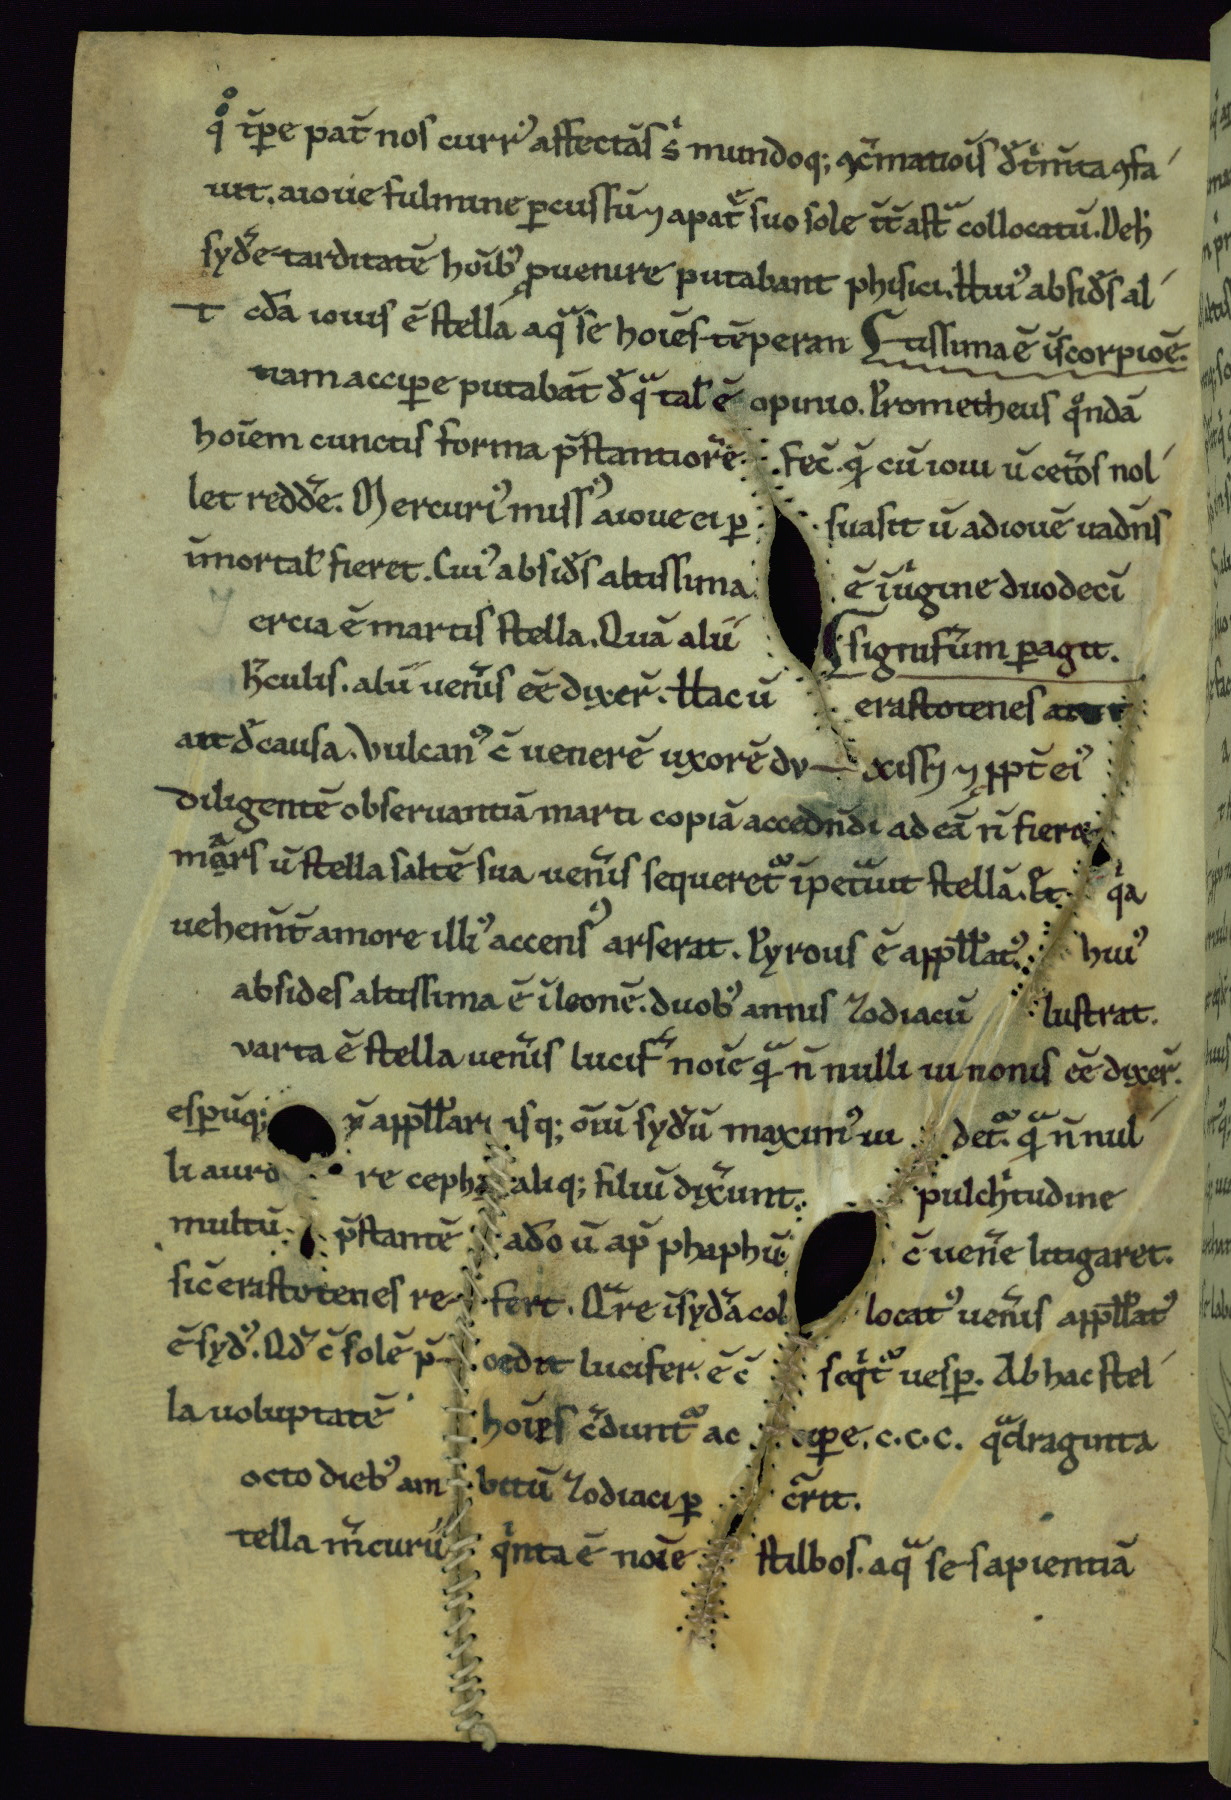 qͦ tp̄e pat̄ nos curr᾿ affectās s̄ mundoq; ꝯc̄mationis dt̄m̄ta ꝯfla
uit. a ioue fulmine ꝑcussū ⁊ a pat̄ suo sole īt̄ ast̄ collocatū. Deh᾿
syde tarditatē hoīb᾿ ꝓuenire putabant phisici. Hui᾿ absids al
t cda iouis ē stella aq̄ se hoīes tēperan tissima ē ī scorpioē.
tiam accipe putabāt d̄ q̄ tal᾿ ē opinio. Prometheus qͦndā
hoīem cunctis forma p̄stantiorē fec̄. q̄ cū ioui ū cet̄os nol
let reddē. Mercuri᾿ miss᾿ a ioue ei ꝑ suasit ū ad iouē uadn̄s
īmortal᾿ fieret. Cui᾿ absids altissima ē ī uͥgine duodecī
ercia ē martis stella. Quā alii signifūm ꝑagit.
h̄culis. alii uen̄is eē dixer̄. Hac ū erastotenes
at d̄ causa. Vulcan᾿ c̄ uenerē uxorē du xiss⁊ ⁊ ꝓpt̄ ei᾿
diligentē obseruantiā marti copiā accedn̄di ad eā n̄ fieret
mars ū stella saltē sua uen̄is sequeret᾿ īpetͣuit stellā. Et qͥa
uehem̄t̄ amore illi᾿ accens᾿ arserat. Pyrous ē appll̄at᾿ hui᾿
absides altissima ē ī leonē. duob᾿ annis zodiacū lustrat.
varta ē stella uen̄is lucif̄ noīe q̄ n̄ nulli iu nonis eē dixer̄.
esꝑūq; appll̄ari isq; oīū sydū maxim᾿ ui det᾿. q̄ n̄ nul
li auro re ceph aliq; filiū dix̄unt. pulchͥtudine
multū p̄stantē ado ū ap̄ phaphū c̄ uen̄e litigaret.
sic̄ erastotenes re fert. Qͣre ī syda col locat᾿ uen̄is appll̄at᾿
ē syd᾿. Qd̄ c̄ solē p̄ cedit lucifer. ē c̄ seqͥt᾿ uesꝑ. Ab hac stel
la uoluptatē hoīes c̄dunt᾿ ac cipe. c.c.c. qͣdraginta
octo dieb᾿ am bitū zodiaci ꝑ c̄rit.
tella m̄curii qͥnta ē noīe stilbos. a qͣ se sapientiā